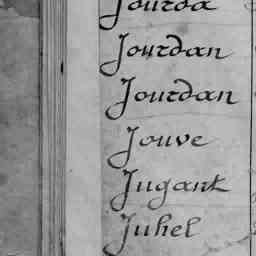 Jourda
Jourdan
Jourdan
Jouve
Jugant
Juhel